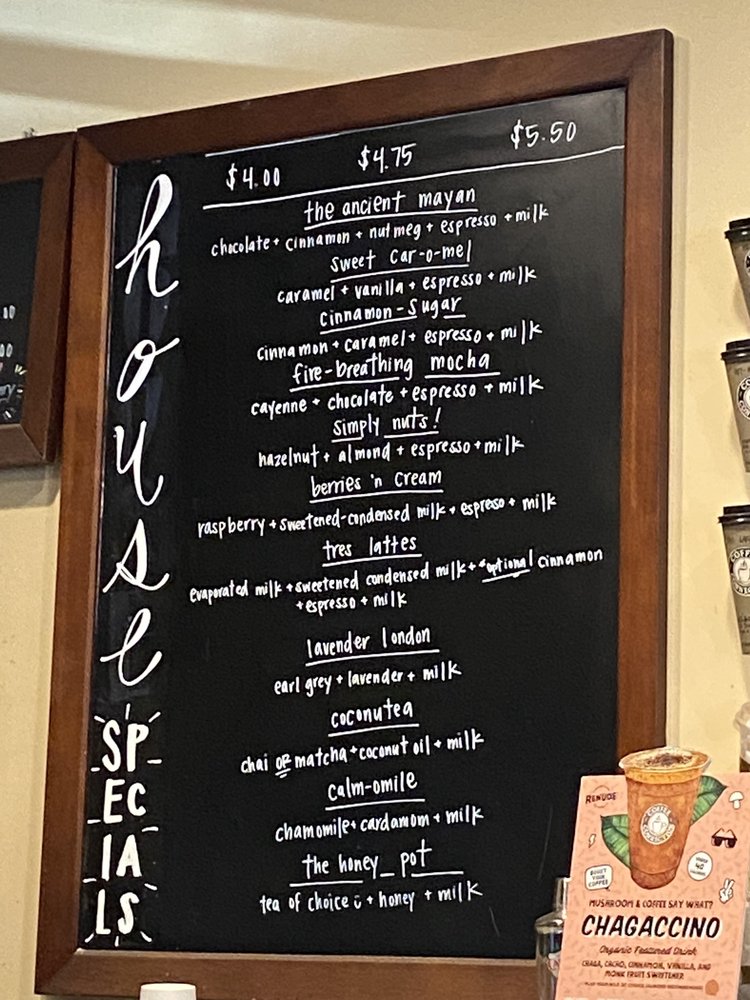 $4.00 $4.75 $5.50
house
SPECIALS
the ancient mayan
chocolate + cinnamon + nutmeg + espresso + milk
sweet car-o-mel
caramel + vanilla + espresso + milk
cinnamon-sugar
cinnamon + caramel + espresso + milk
fire-breathing mocha
cayenne + chocolate + espresso + milk
simply nuts!
hazelnut + almond + espresso + milk
berries 'n cream
raspberry + sweetened-condensed milk + espresso + milk
tres lattes
evaporated milk + sweetened condensed milk + *optional cinnamon
+ espresso + milk
lavender london
earl grey + lavender + milk
coconutea
chai or matcha + coconut oil + milk
calm-omile
chamomile + cardamom + milk
the honey pot
tea of choice + honey + milk
RENUDE
BOOST YOUR COFFEE
UNDER 40 CALORIES
MUSHROOM & COFFEE SAY WHAT?
CHAGACCINO
Organic Featured Drink
CHAGA, CACAO, CINNAMON, VANILLA, AND
MONK FRUIT SWEETENER